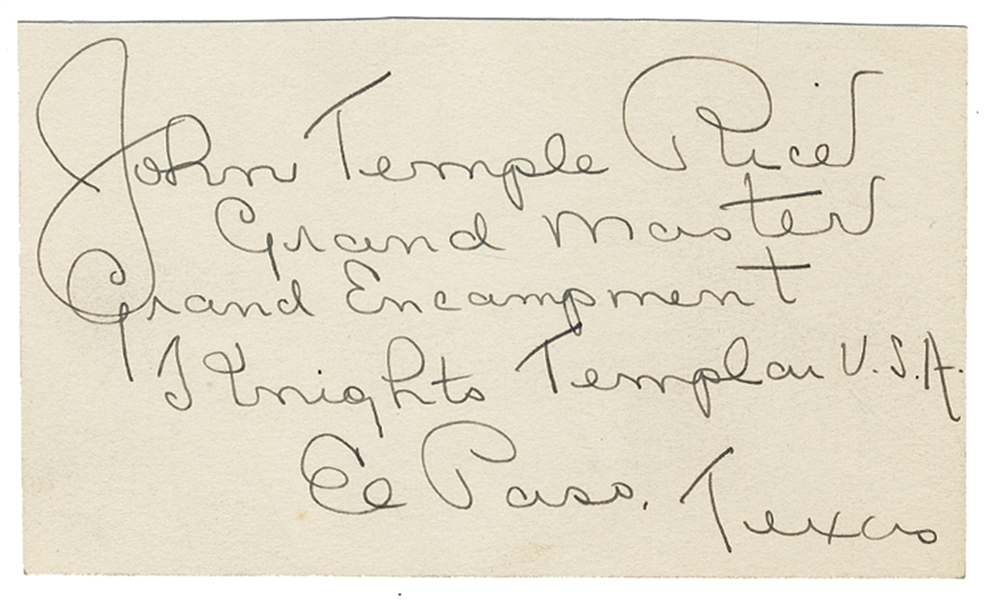 John Temple Rice
Grand Master
Grand Encampment
Knights Templar U.S.A.
El Paso, Texas